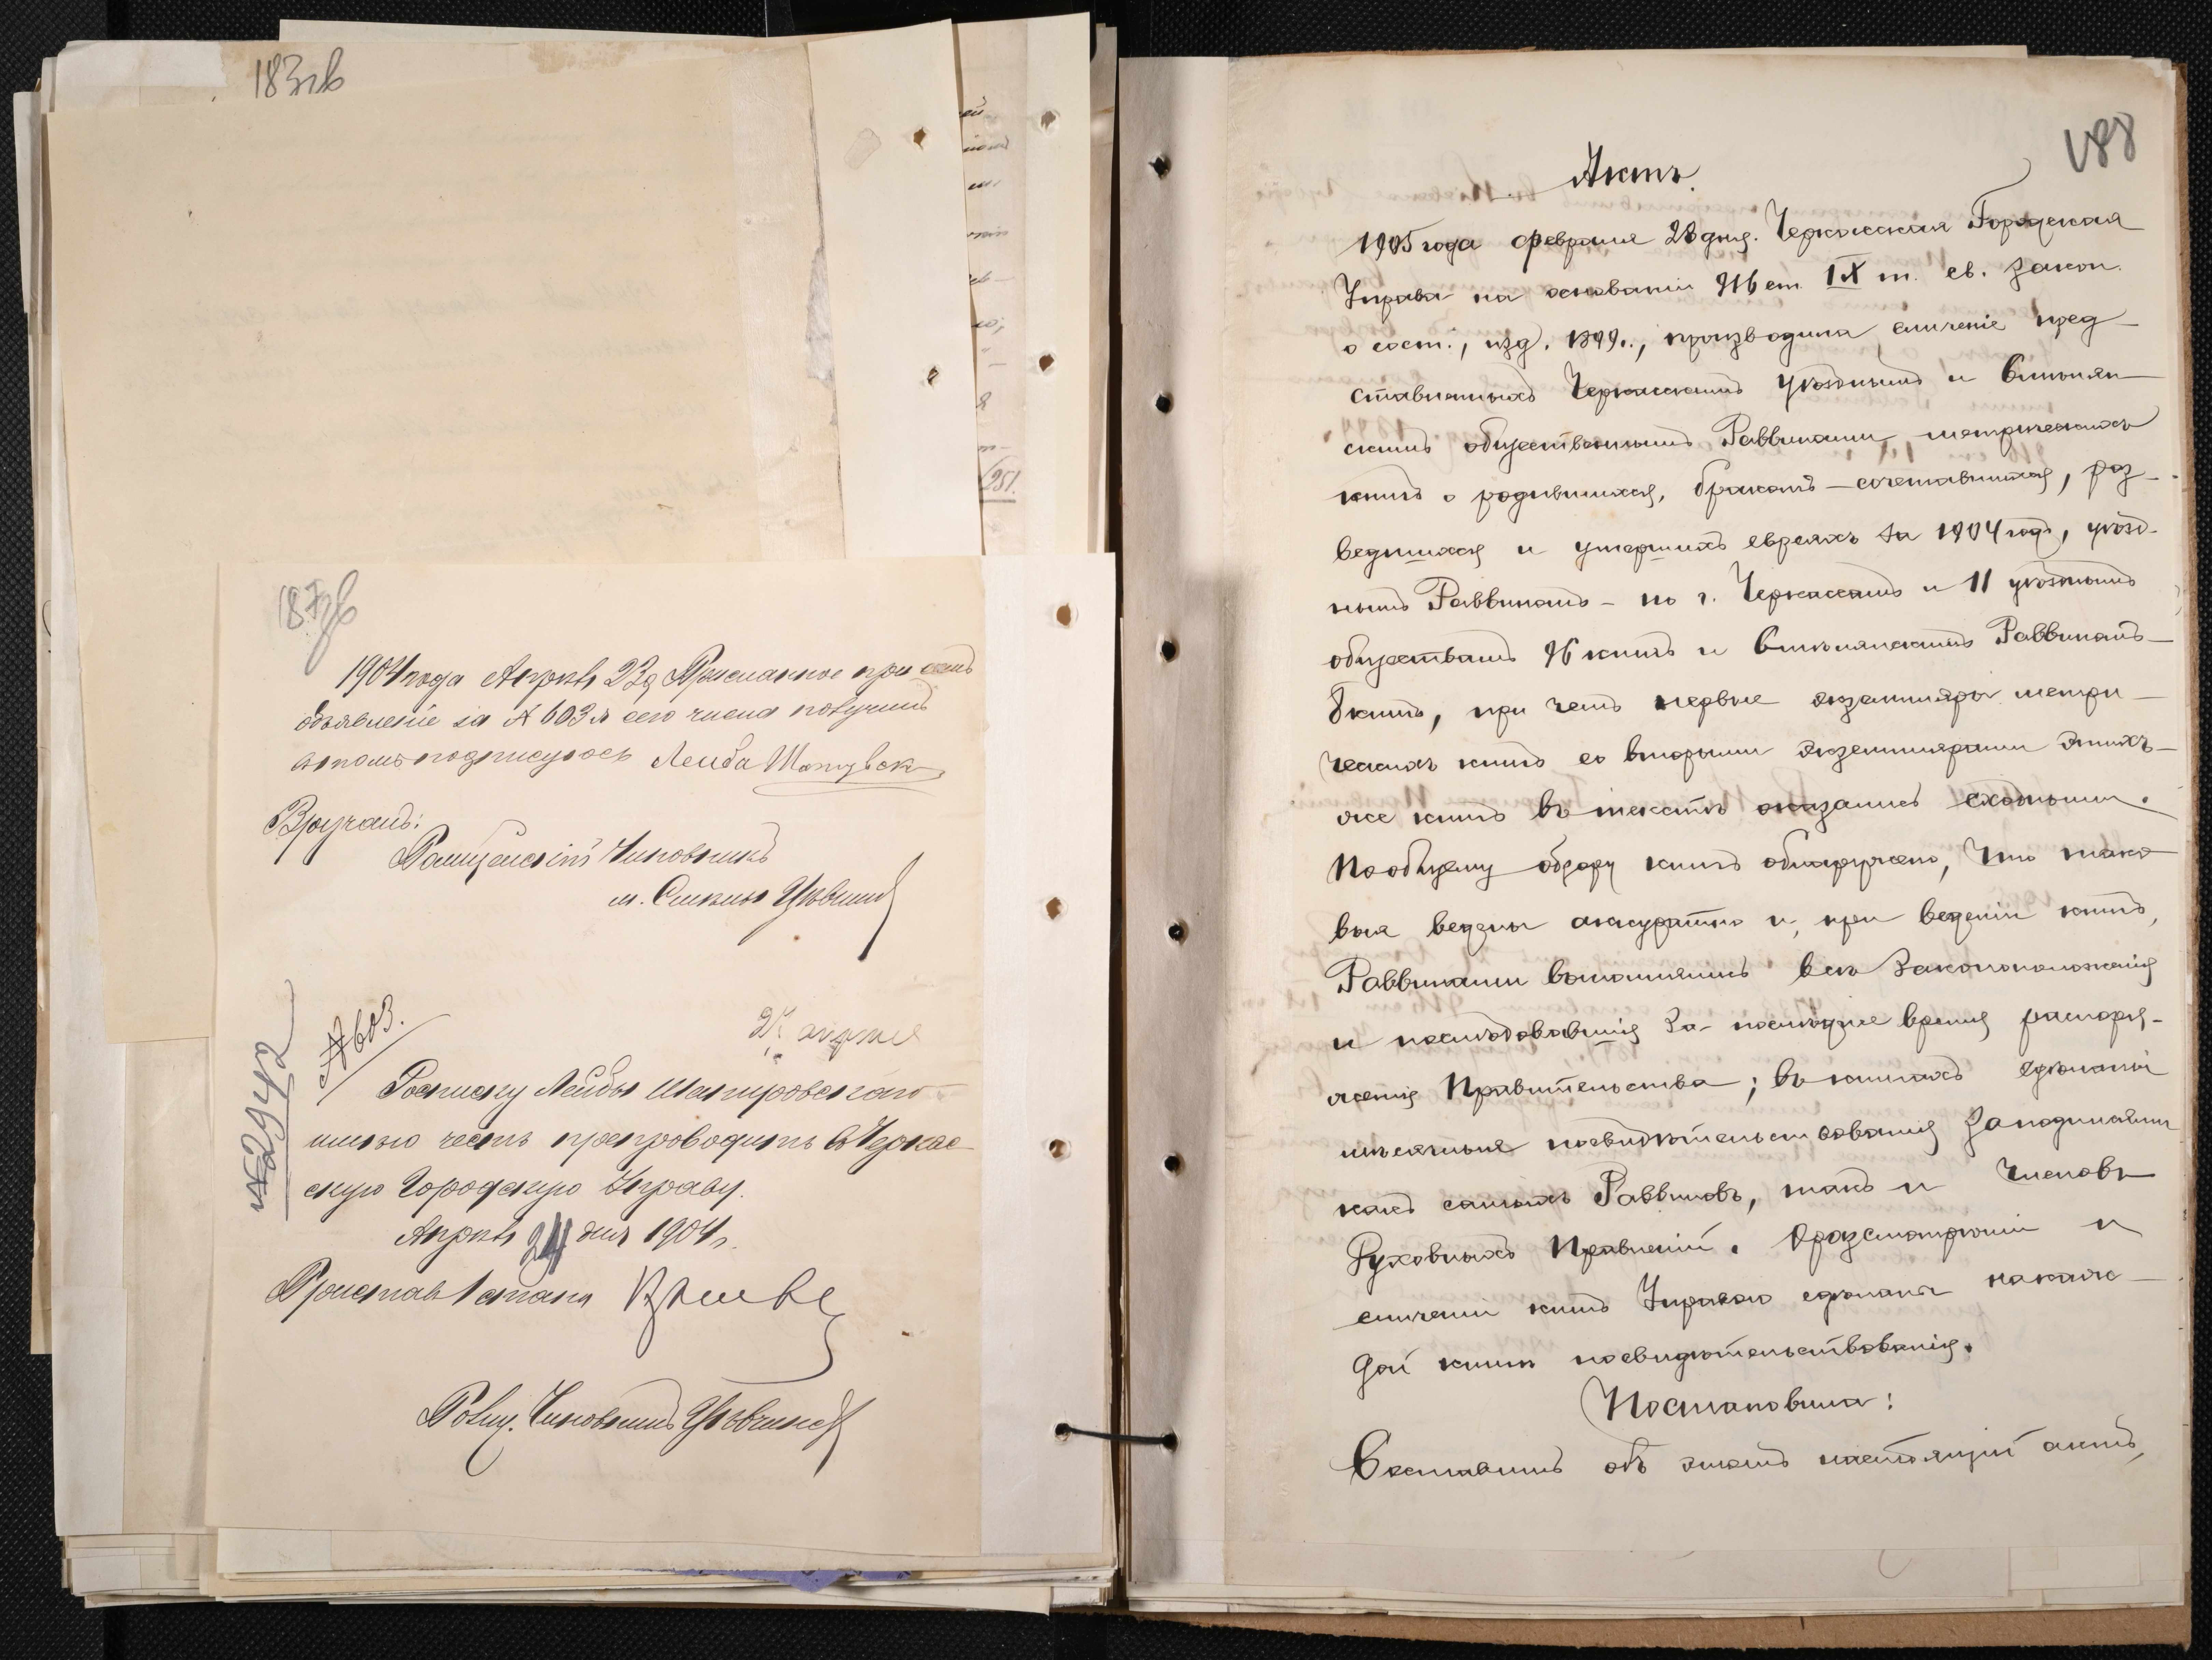 183об
187об
1904 года Апрѣля 23 д. Присланное при семъ
объявленіе за № 603 м сего числа получилъ
в томъ подписуюсь Лейба
Вручалъ:
Полицейскій Чиновникъ
м. Смѣлы
27 апреля
№ 603.
№ 2942
Росписку Лейбы Шапировскаго
имѣю честь препроводить въ Черкас-
скую Городскую Управу.
Апрѣля 24 дня 1904 г.
Приставъ 1 стана
Полиц. Чиновникъ
951.
188
Актъ.
1905 года февраля 28 дня. Черкасская Городская
Управа на основаніи 916 ст. IX т. св. закон.
о сост., изд. 1899 г., производила сличеніе пред-
ставленныхъ Черкасскимъ уѣзднымъ и Вильшан-
скимъ общественнымъ Раввинами метрическихъ
книгъ о родившихся, бракомъ-сочетавшихся, раз-
ведшихся и умершихъ евреяхъ за 1904 годъ, уѣзд-
нымъ Раввиномъ - по г. Черкассамъ и 11 уѣзднымъ
обществамъ 96 книгъ и Вильшанскимъ Раввиномъ-
8 книгъ, при чемъ первые экземпляры метри-
ческихъ книгъ со вторыми экземплярами этихъ-
же книгъ въ текстѣ оказались сходными.
По общему обзору книгъ обнаружено, что тако
выя ведены аккуратно и, при веденіи книгъ,
Раввинами выполнялись всѣ Законоположенія
и послѣдовавшія за послѣднее время распоря-
женія Правительства; въ книгахъ сдѣланы
мѣсячныя посвидѣтельствованія за подписями
какъ самихъ Раввиновъ, такъ и Членовъ
Духовныхъ Правленій. О разсмотрѣніи и
сличеніи книгъ Управою сдѣланы на кажс-
дой книгѣ посвидѣтельствованія.
Постановила:
Составивъ объ этомъ настоящій актъ,